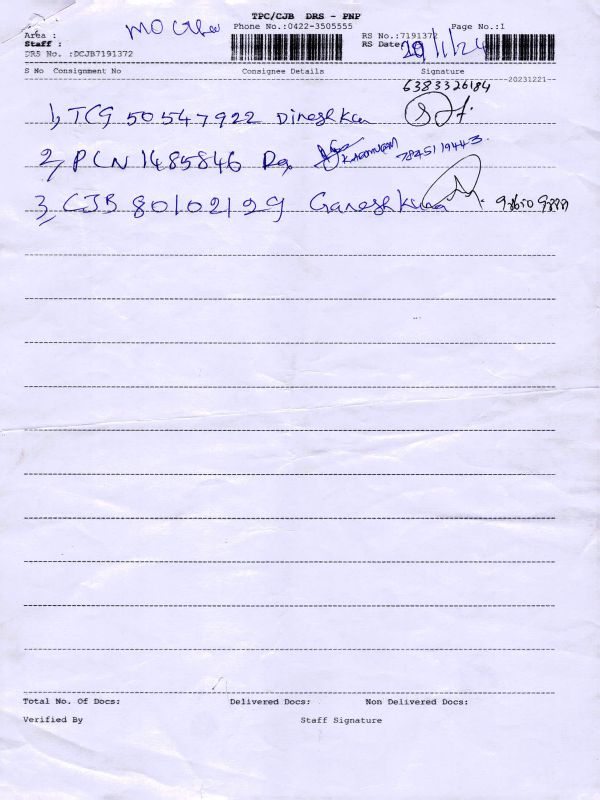 TPC/CJB DRS - PNP
Phone No.:0422-3505555 Page No.:1
Area : MO
Staff : RS No.:7191372
DRS No. :DCJB7191372 RS Date: 20/1/24
S No Consignment No Consignee Details Signature
20231221
6383326184
1, TCG 50547922 Dineshkum
2, PCN 1485846 7845119443
3, CJB 80102129 Ganeshkuma
Total No. Of Docs: Delivered Docs: Non Delivered Docs:
Verified By Staff Signature